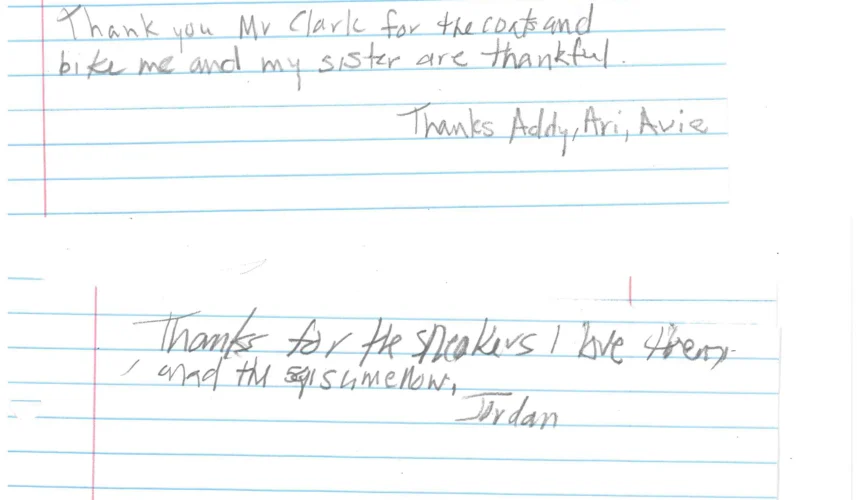 Thank you Mr Clark for the coats and
bike me and my sister are thankful.
Thanks Addy, Ari, Avie
Thanks for the sneakers I love them
and the
Jordan